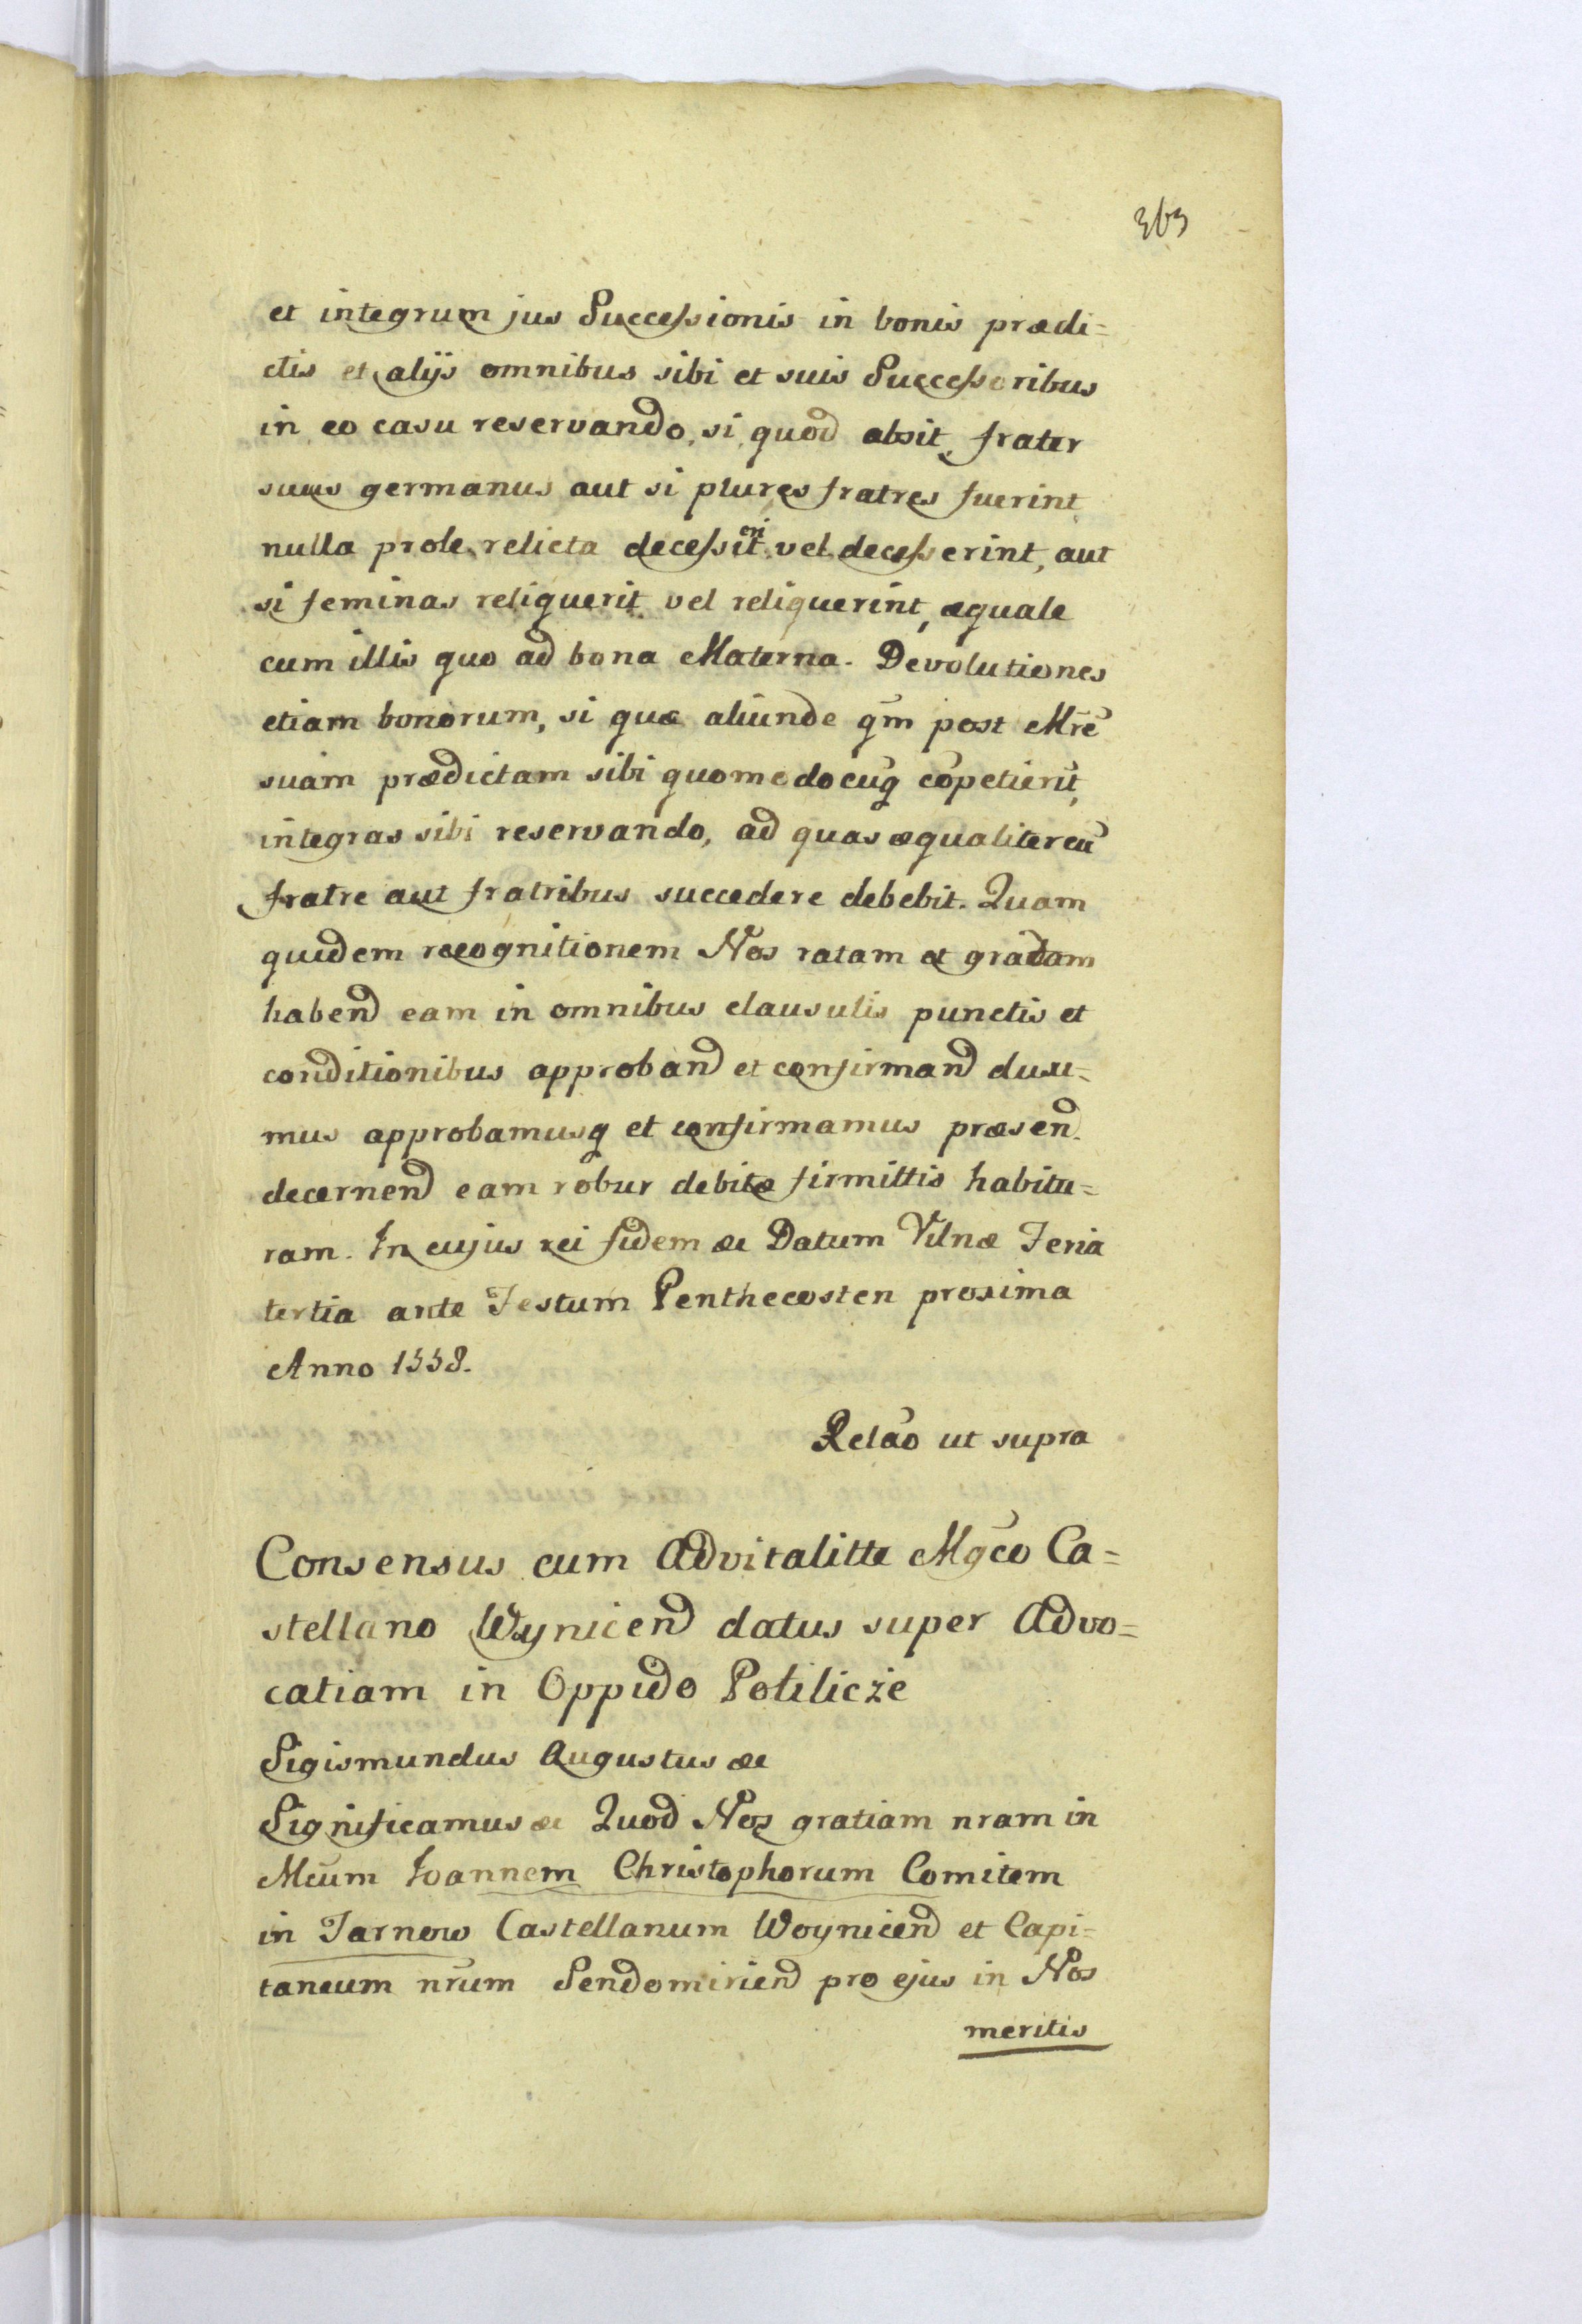 363
et integrum jus Successionis in bonis prædi=
ctis et alijs omnibus sibi et suis Successoribus
in eo casu reservando, si quod absit, frater
suus germanus aut si plures fratres fuerint
nulla prole relicta decessit eri vel decesserint, aut
si feminas reliquerit vel reliquerint, æquale
cum illis quo ad bona Materna. Devolutiones
etiam bonorum, si quæ aliunde qm̄ post Mr̄e
suam prædictam sibi quomodocuq̄ cōpetierūt,
integras sibi reservando, ad quas æqualiter cū
fratre aut fratribus succedere debebit. Quam
quidem recognitionem Nos ratam et gratam
habend eam in omnibus clausulis punctis et
conditionibus approband et confirmand duxi=
mus approbamusq et confirmamus præsen.
decernend eam robur debitæ firmittis habitu=
ram. In cujus rei fidem &c Datum Vilnæ Feria
tertia ante Festum Penthecosten proxima
Anno 1558.
Relaō ut supra
Consensus cum Advitalitte Mgc̄o Ca=
stellano Wynicend datus super Advo=
catiam in Oppido Potilicże
Sigismundus Augustus &c
Significamus &c Quod Nos gratiam nram in
Mcūm Ioannem Christophorum Comitem
in Tarnow Castellanum Woynicend et Capi=
taneum nr̄um Sendomiriend pro ejus in Nos
meritis